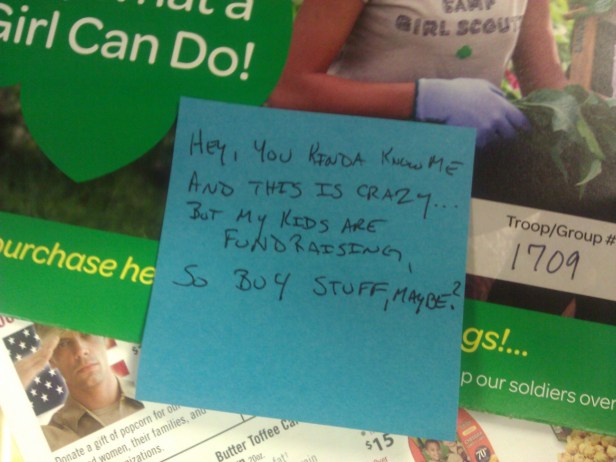 What a
Girl Can Do!
CAMP
GIRL SCOUT
HEY, YOU KINDA KNOW ME
AND THIS IS CRAZY...
BUT MY KIDS ARE
FUNDRAISING,
SO BUY STUFF, MAYBE?
Troop/Group #
1709
purchase he
gs!...
p our soldiers over
Donate a gift of popcorn for ou
women, their families, and
izations.
Butter Toffee Ca
20oz.
$15
70